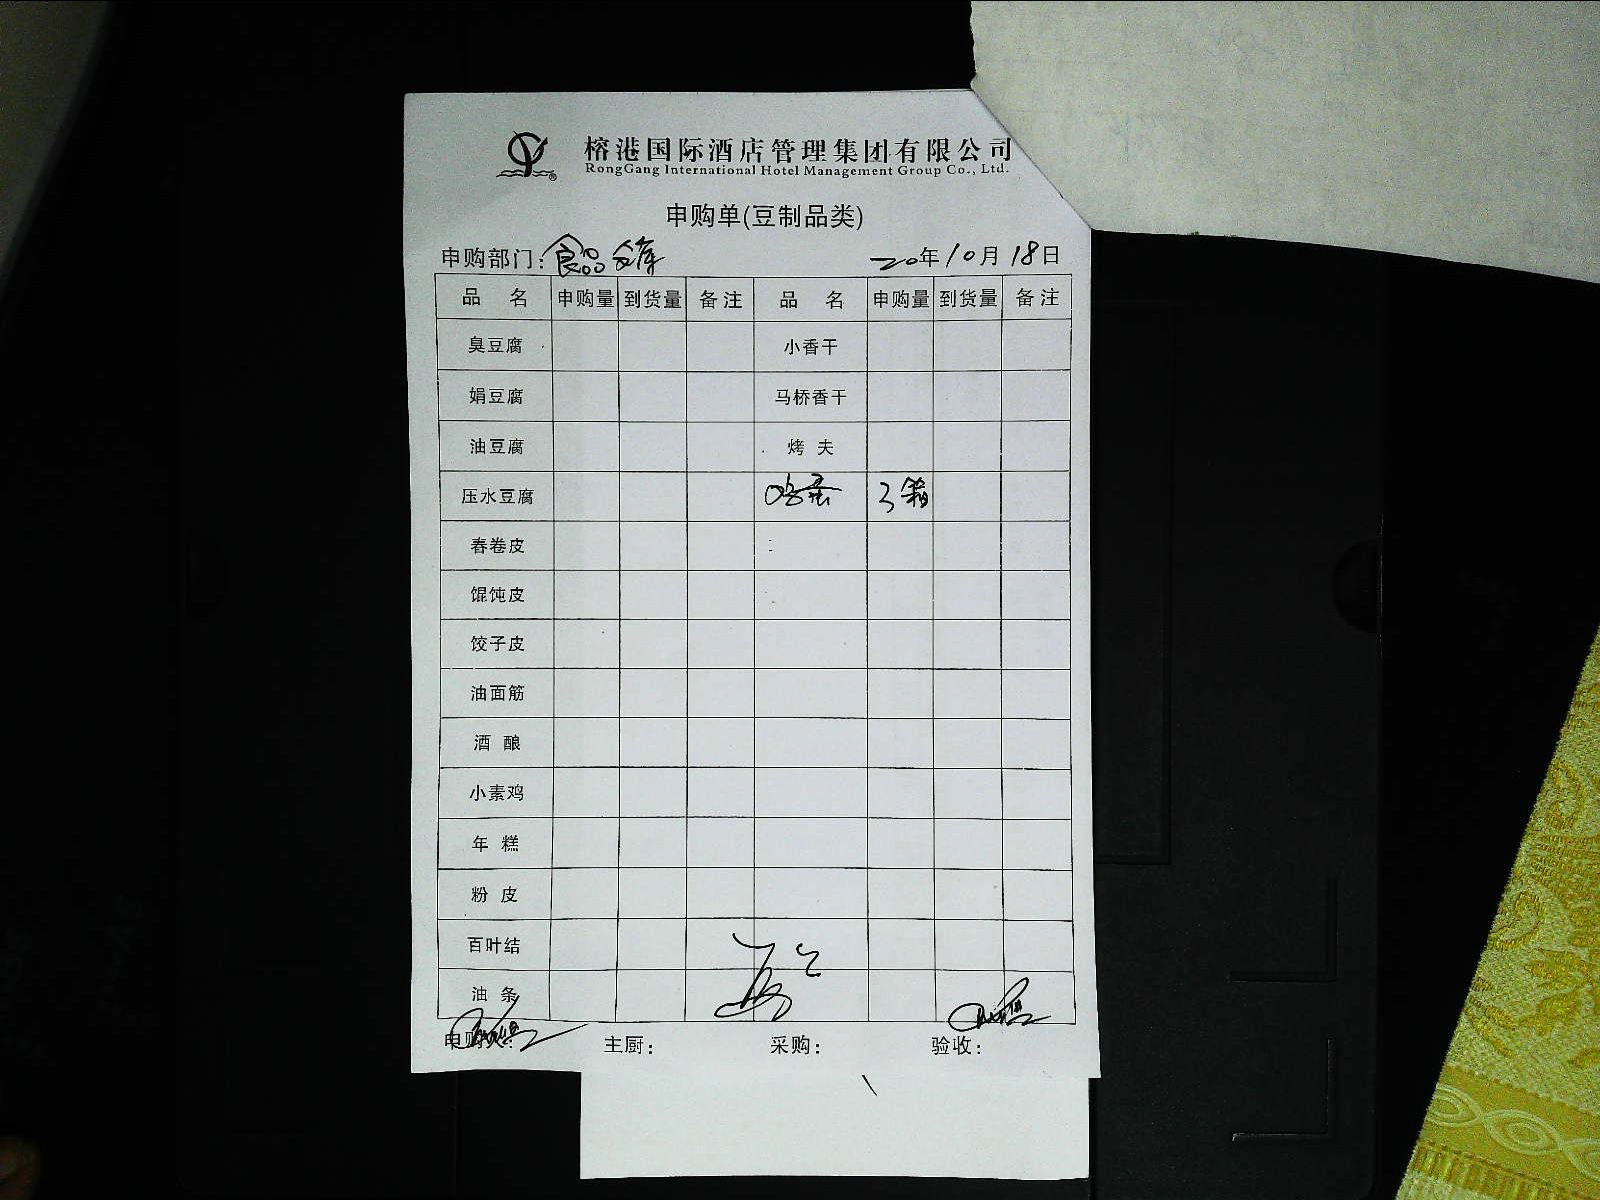 榕港国际酒店管理集团有限公司
RongGang International Hotel Management Group Co., Ltd.
申购单(豆制品类)
申购部门：食品仓库 20年10月18日
品 名 申购量 到货量 备注 品 名 申购量 到货量 备注
臭豆腐 小香干
娟豆腐 马桥香干
油豆腐 烤 夫
压水豆腐 鸡蛋 3箱
春卷皮
馄饨皮
饺子皮
油面筋
酒 酿
小素鸡
年 糕
粉 皮
百叶结
油 条
申购人： 主厨： 采购： 验收：